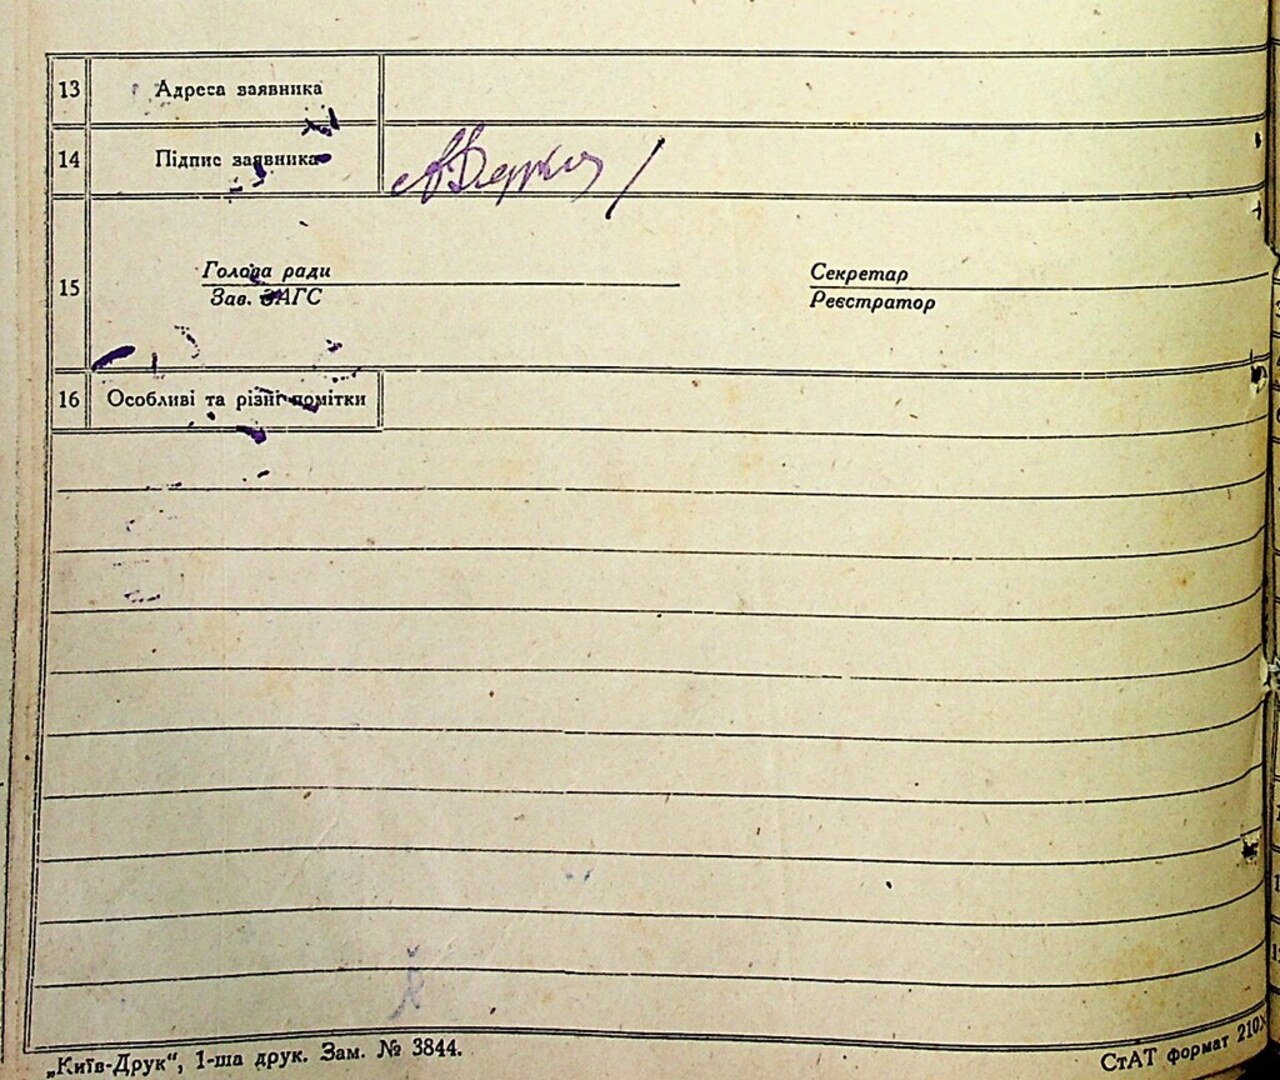 13 Адреса заявника
14 Підпис заявника
15 Голова ради Секретар
Зав. ЗАГС Реєстратор
16 Особливі та різні помітки
„Київ-Друк“, 1-ша друк. Зам. № 3844. СтАТ формат 210